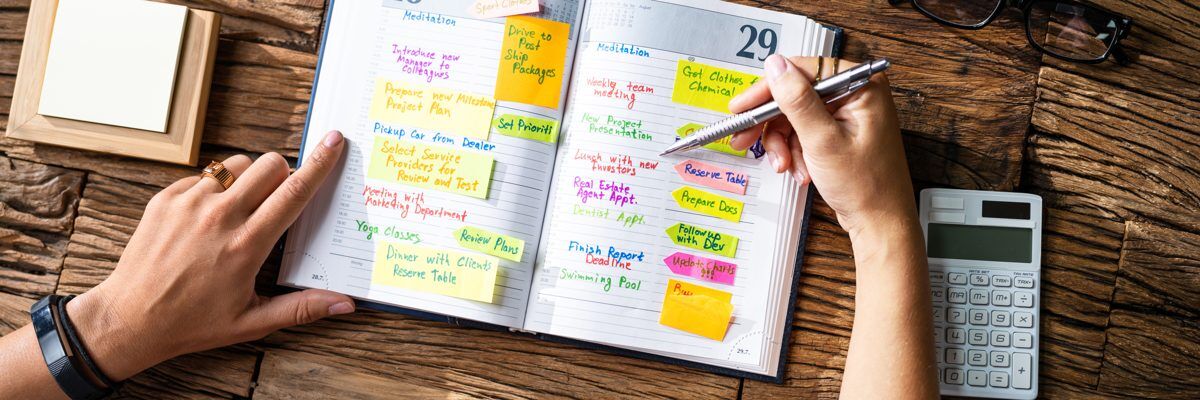 Sport Clothes
Meditation
Drive to
Post
Ship
Packages
Introduce new
Manager to
Colleagues
Prepare new Milestone
Project Plan
Set Prioriti
Pickup Car from Dealer
Select Service
Providers for
Review and Test
Meeting with
Marketing Department
Yoga Classes
Review Plans
Dinner with Clients
Reserve Table
28.7.
29
Meditation
Get Clothes f
Chemical
Weekly team
meeting
New Project
Presentation
Lunch with new
Investors
Reserve Table
Real Estate
Agent Appt.
Prepare Docs
Dentist Appt.
Followup
with Dev
Finish Report
Deadline
Update Charts
!!!
Swimming Pool
29.7.